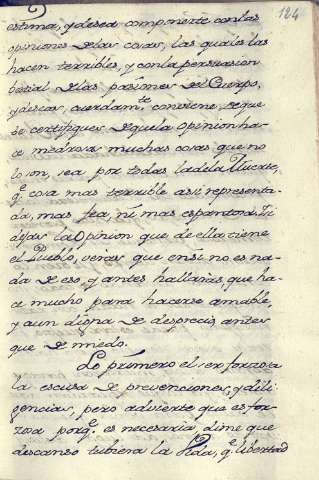 124
estima, y desea componerte con las
opiniones de las cosas, las quales las
hacen terribles, y con la persuasion
bestial de las pasiones del Cuerpo,
y deseas, cuerdam.te conviene, q.e que
te certifiques de que la opinion ha-
ce medrosa muchas cosas que no
lo son, sea por todas la de la Muerte,
q.e cosa mas terrible asi representa-
da, mas fea, ni mas espantosa: Si
dejas la Opinion que de ella tiene
el Pueblo, veras que en si no es na-
da de eso, y antes hallarias que ha-
ce mucho para hacerse amable,
y aun digna de desprecio, antes
que de miedo.
Lo primero el ser forzosa
la escusa de prevenciones, y dili-
gencias, pero advierte que es for-
zosa porq.e es necesaria, dime que
descanso tubiera la Vida, q.e libertad